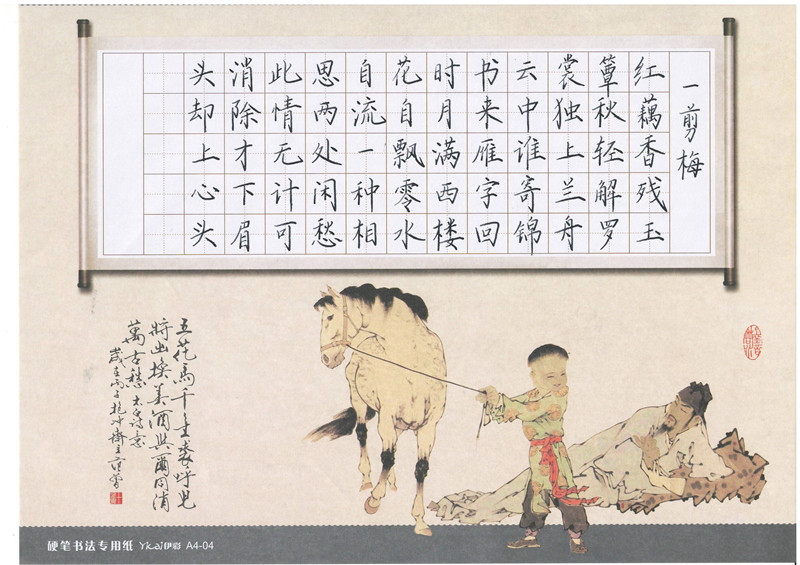 一剪梅
红藕香残玉
簟秋轻解罗
裳独上兰舟
云中谁寄锦
书来雁字回
时月满西楼
花自飘零水
自流一种相
思两处闲愁
此情无计可
消除才下眉
头却上心头
五花馬千金裘呼兒
將出換美酒與爾同消
萬古愁 太白詩意
歲在丙子抱冲齋主范曾
硬笔书法专用纸 Yicai伊彩 A4-04